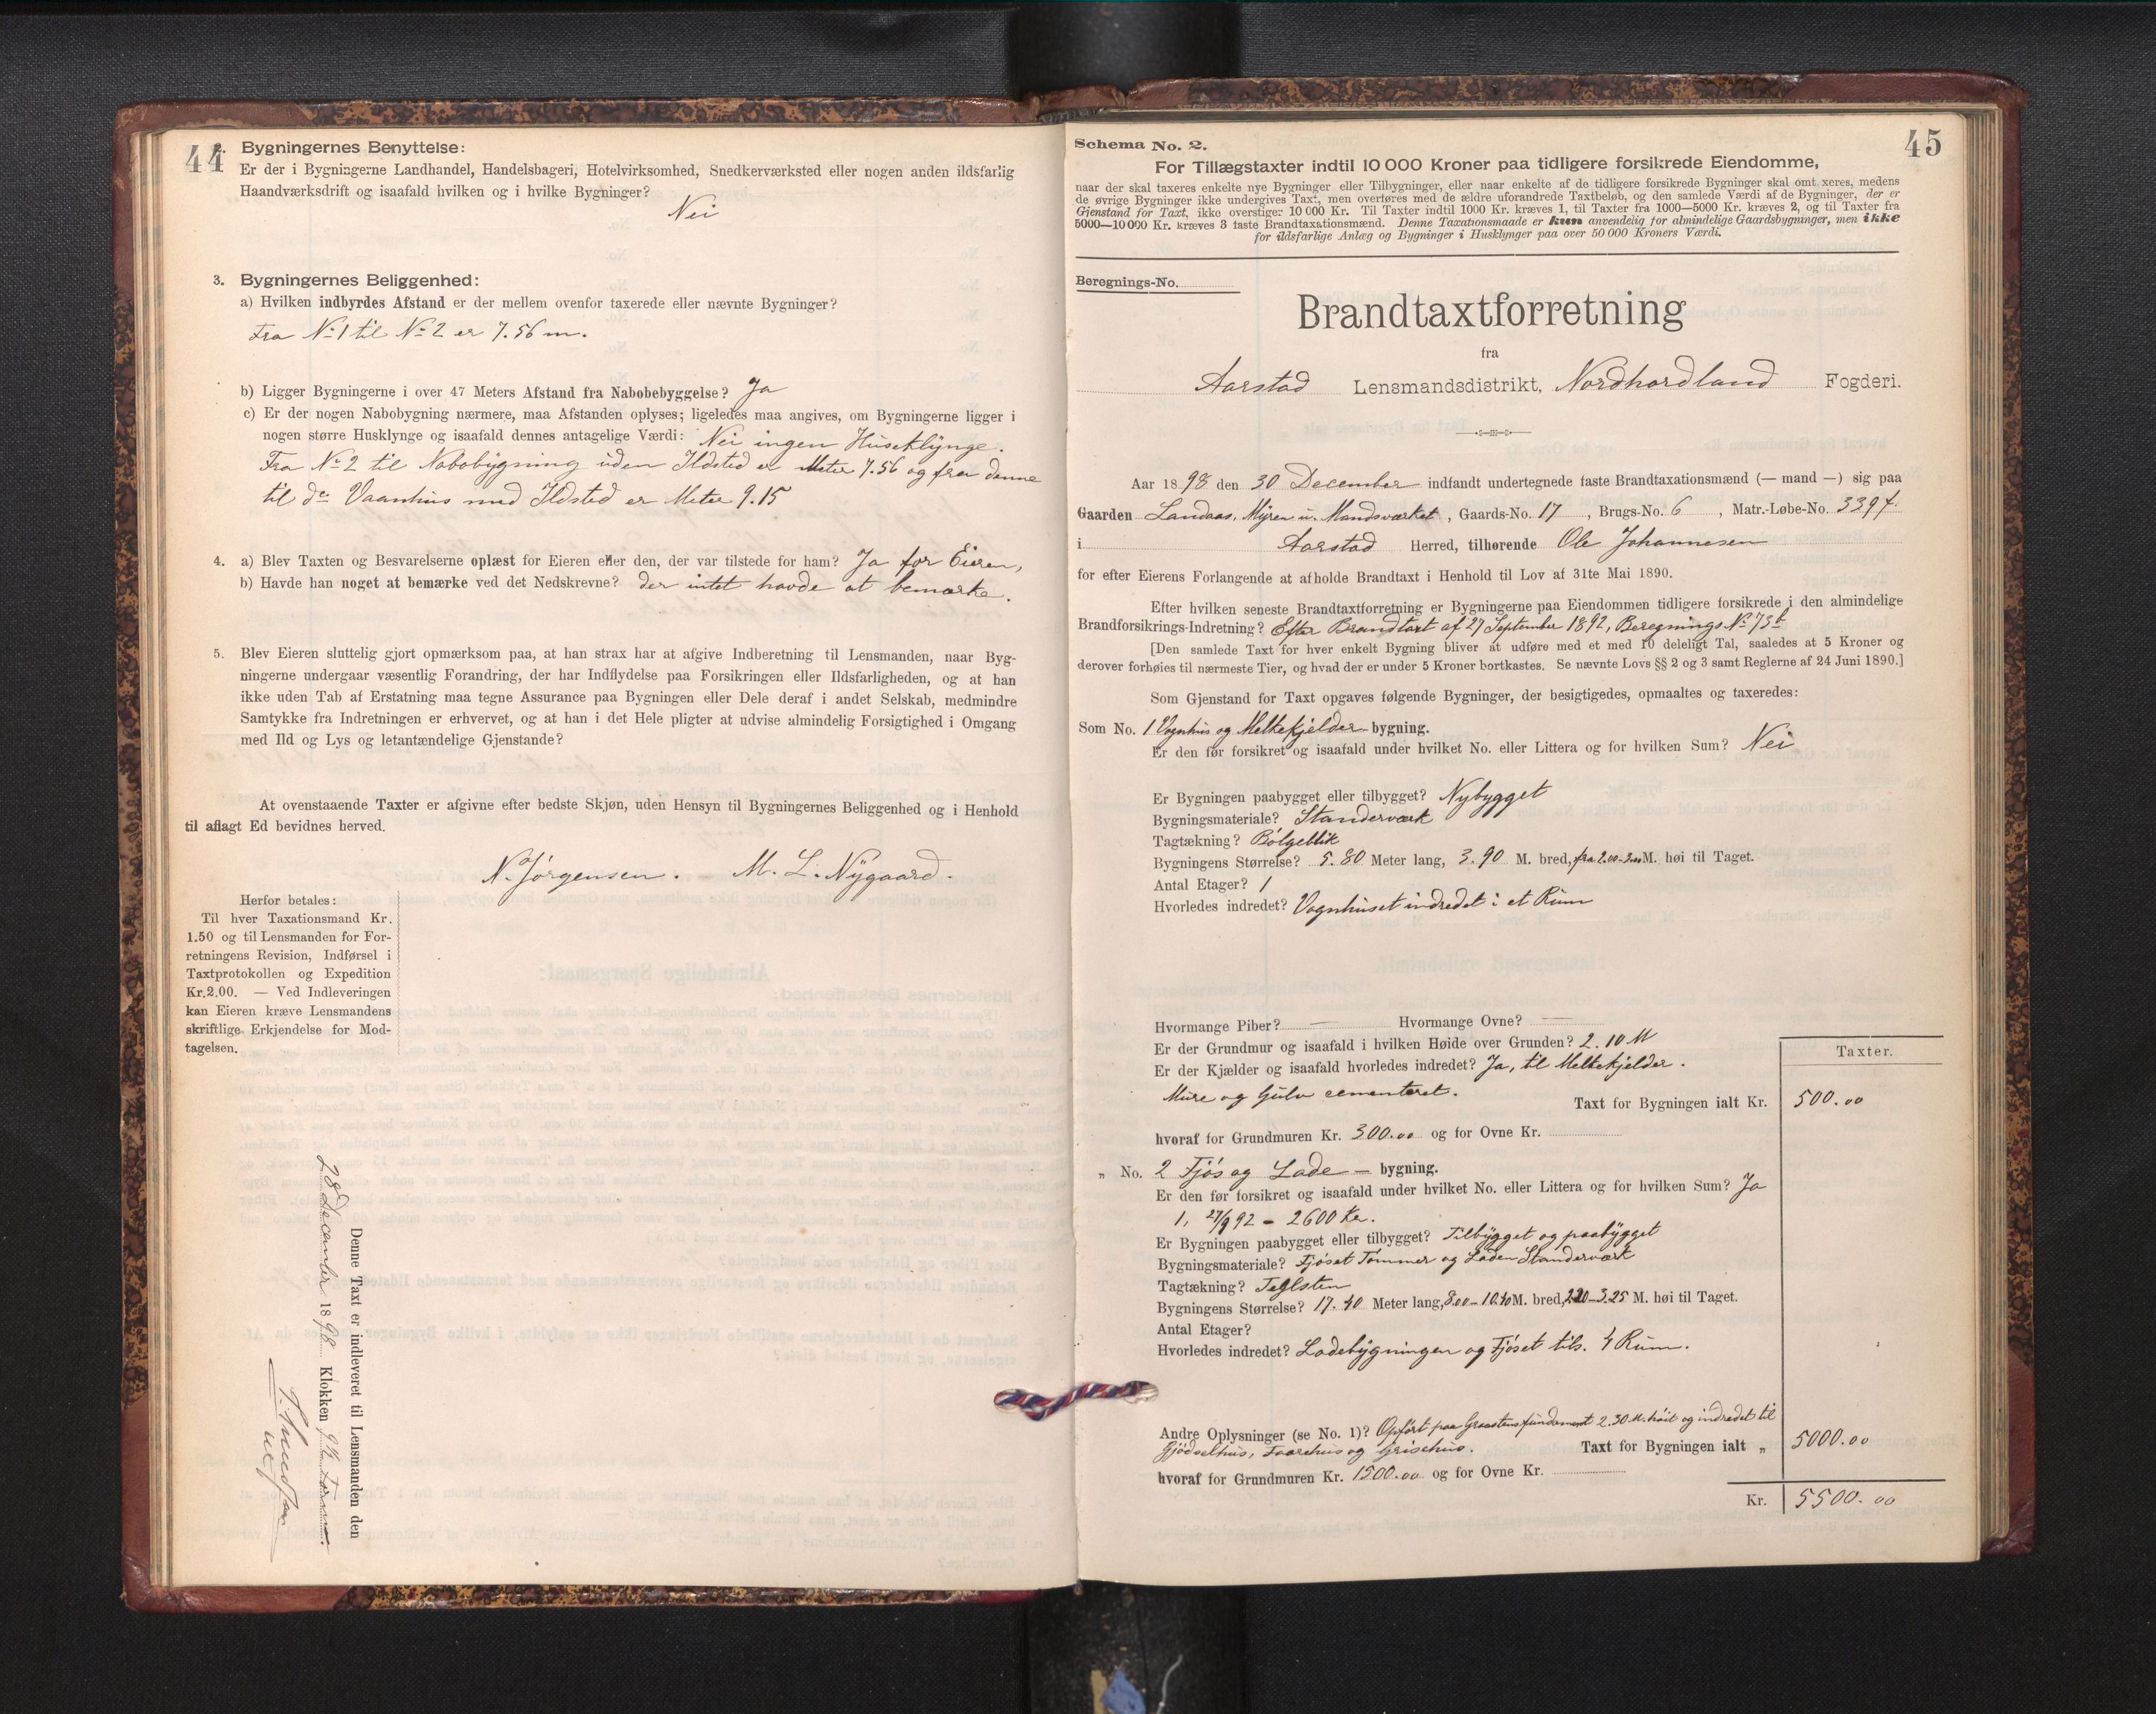 44
2. Bygningernes Benyttelse:
Er der i Bygningerne Landhandel, Handelsbageri, Hotelvirksomhed, Snedkerværksted eller nogen anden ildsfarlig
Haandværksdrift og isaafald hvilken og i hvilke Bygninger?
Nei
3. Bygningernes Beliggenhed:
a) Hvilken indbyrdes Afstand er der mellem ovenfor taxerede eller nævnte Bygninger?
Fra No 1 til No 2 er 7.56 m.
b) Ligger Bygningerne i over 47 Meters Afstand fra Nabobebyggelse? Ja
c) Er der nogen Nabobygning nærmere, maa Afstanden oplyses; ligeledes maa angives, om Bygningerne ligger i
nogen større Husklynge og isaafald dennes antagelige Værdi: Nei ingen Huseklynge.
Fra No 2 til Nabobygning uden Ildsted er Meter 7.56 og fra denne
til do Vaanhus med Ildsted er Meter 9.15
4. a) Blev Taxten og Besvarelserne oplæst for Eieren eller den, der var tilstede for ham? Ja for Eieren,
b) Havde han noget at bemærke ved det Nedskrevne? der intet havde at bemærke.
5. Blev Eieren sluttelig gjort opmærksom paa, at han strax har at afgive Indberetning til Lensmanden, naar Byg-
ningerne undergaar væsentlig Forandring, der har Indflydelse paa Forsikringen eller Ildsfarligheden, og at han
ikke uden Tab af Erstatning maa tegne Assurance paa Bygningen eller Dele deraf i andet Selskab, medmindre
Samtykke fra Indretningen er erhvervet, og at han i det Hele pligter at udvise almindelig Forsigtighed i Omgang
med Ild og Lys og letantændelige Gjenstande?
At ovenstaaende Taxter er afgivne efter bedste Skjøn, uden Hensyn til Bygningernes Beliggenhed og i Henhold
til aflagt Ed bevidnes herved.
N. Jørgensen. M. L. Nygaard.
Herfor betales:
Til hver Taxationsmand Kr.
1.50 og til Lensmanden for For-
retningens Revision, Indførsel i
Taxtprotokollen og Expedition
Kr.2.00. — Ved Indleveringen
kan Eieren kræve Lensmandens
skriftlige Erkjendelse for Mod-
tagelsen.
Denne Taxt er indleveret til Lensmanden den
28 December 1898 Klokken 9½ Form.
45
Schema No. 2.
For Tillægstaxter indtil 10 000 Kroner paa tidligere forsikrede Eiendomme,
naar der skal taxeres enkelte nye Bygninger eller Tilbygninger, eller naar enkelte af de tidligere forsikrede Bygninger skal omt xeres, medens
de øvrige Bygninger ikke undergives Taxt, men overføres med de ældre uforandrede Taxtbeløb, og den samlede Værdi af de Bygninger, der er
Gjenstand for Taxt, ikke overstiger 10 000 Kr. Til Taxter indtil 1000 Kr. kræves 1, til Taxter fra 1000—5000 Kr. kræves 2, og til Taxter fra
5000—10 000 Kr. kræves 3 faste Brandtaxationsmænd. Denne Taxationsmaade er kun anvendelig for almindelige Gaardsbygninger, men ikke
for ildsfarlige Anlæg og Bygninger i Husklynger paa over 50 000 Kroners Værdi.
Beregnings-No.
Brandtaxtforretning
fra
Aarstad Lensmandsdistrikt, Nordhordland Fogderi.
Aar 1898 den 30 December indfandt undertegnede faste Brandtaxationsmænd (— mand —) sig paa
Gaarden Landaas, Myren u. Mandsværket, Gaards-No. 17, Brugs-No. 6, Matr.-Løbe-No. 339 f.
i Aarstad Herred, tilhørende Ole Johannesen
for efter Eierens Forlangende at afholde Brandtaxt i Henhold til Lov af 31te Mai 1890.
Efter hvilken seneste Brandtaxtforretning er Bygningerne paa Eiendommen tidligere forsikrede i den almindelige
Brandforsikrings-Indretning? Efter Brandtaxt af 27 September 1892, Beregnings No 73b
[Den samlede Taxt for hver enkelt Bygning bliver at udføre med et med 10 deleligt Tal, saaledes at 5 Kroner og
derover forhøies til nærmeste Tier, og hvad der er under 5 Kroner bortkastes. Se nævnte Lovs §§ 2 og 3 samt Reglerne af 24 Juni 1890.]
Som Gjenstand for Taxt opgaves følgende Bygninger, der besigtigedes, opmaaltes og taxeredes:
Som No. 1 Vognhus og Melkekjelder bygning.
Er den før forsikret og isaafald under hvilket No. eller Littera og for hvilken Sum? Nei
Er Bygningen paabygget eller tilbygget? Nybygget
Bygningsmateriale? Standerværk
Tagtækning? Bølgeblik
Bygningens Størrelse? 5.80 Meter lang, 3.90 M. bred, fra 2.00-3.00 M. høi til Taget.
Antal Etager? 1
Hvorledes indredet? Vognhuset indredet i et Rum
Hvormange Piber? — Hvormange Ovne? —
Er der Grundmur og isaafald i hvilken Høide over Grunden? 2.10 M
Er der Kjælder og isaafald hvorledes indredet? Ja, til Melkekjelder.
Mure og Gulv cementeret.
Taxter.
Taxt for Bygningen ialt Kr. 500.00
hvoraf for Grundmuren Kr. 300.00 og for Ovne Kr.
„ No. 2 Fjøs og Lade — bygning.
Er den før forsikret og isaafald under hvilket No. eller Littera og for hvilken Sum? Ja
1, 27/9 92 - 2600 Kr.
Er Bygningen paabygget eller tilbygget? Tilbygget og paabygget
Bygningsmateriale? Fjøset Tømmer og Laden Standerværk
Tagtækning? Teglsten
Bygningens Størrelse? 17.40 Meter lang, 8.00-10.40 M. bred, 2.20-3.25 M. høi til Taget.
Antal Etager?
Hvorledes indredet? Ladebygningen og Fjøset tils. 4 Rum.
Andre Oplysninger (se No. 1)? Opført paa Graastensfundament 2.30 M. høit og indredet til
Gjødselhus, Faarehus og Grisehus. Taxt for Bygningen ialt „ 5000.00
hvoraf for Grundmuren Kr. 1500.00 og for Ovne Kr.
Kr. 5500.00